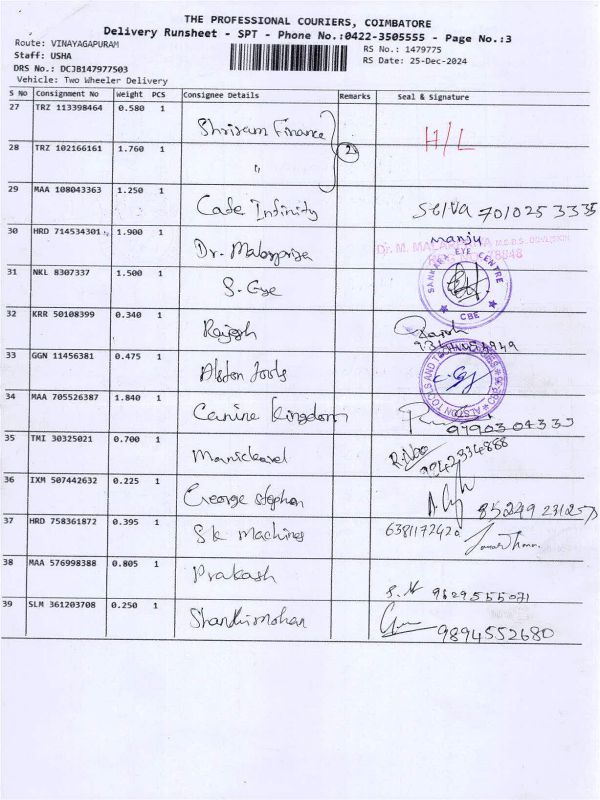 THE PROFESSIONAL COURIERS, COIMBATORE
Delivery Runsheet - SPT - Phone No.:0422-3505555 - Page No.:3
Route: VINAYAGAPURAM
RS No.: 1479775
Staff: USHA
RS Date: 25-Dec-2024
DRS No.: DCJB147977503
Vehicle: Two Wheeler Delivery
S No Consignment No Weight PCS Consignee Details Remarks Seal & Signature
27 TRZ 113398464 0.580 1 Shriram Finance H/L
28 TRZ 102166161 1.760 1 " 2
29 MAA 108043363 1.250 1 Cafe Infinity Selva 7010253335
30 HRD 714534301 1.900 1 Dr. manju
31 NKL 8307337 1.500 1 S. Eye SANKARA EYE CENTRE CBE
32 KRR 50108399 0.340 1 Rajesh
33 GGN 11456381 0.475 1 Alston Tools ALSTON TOOLS AND
34 MAA 705526387 1.840 1 Canine Kingdom 9790304333
35 TMI 30325021 0.700 1 Manickavel 9842334888
36 IXM 507442632 0.225 1 George Stephen
37 HRD 758361872 0.395 1 S k machines 6381172420
38 MAA 576998388 0.805 1 Prakash 9629555071
39 SLM 361203708 0.250 1 Shanthimohan 9894552680